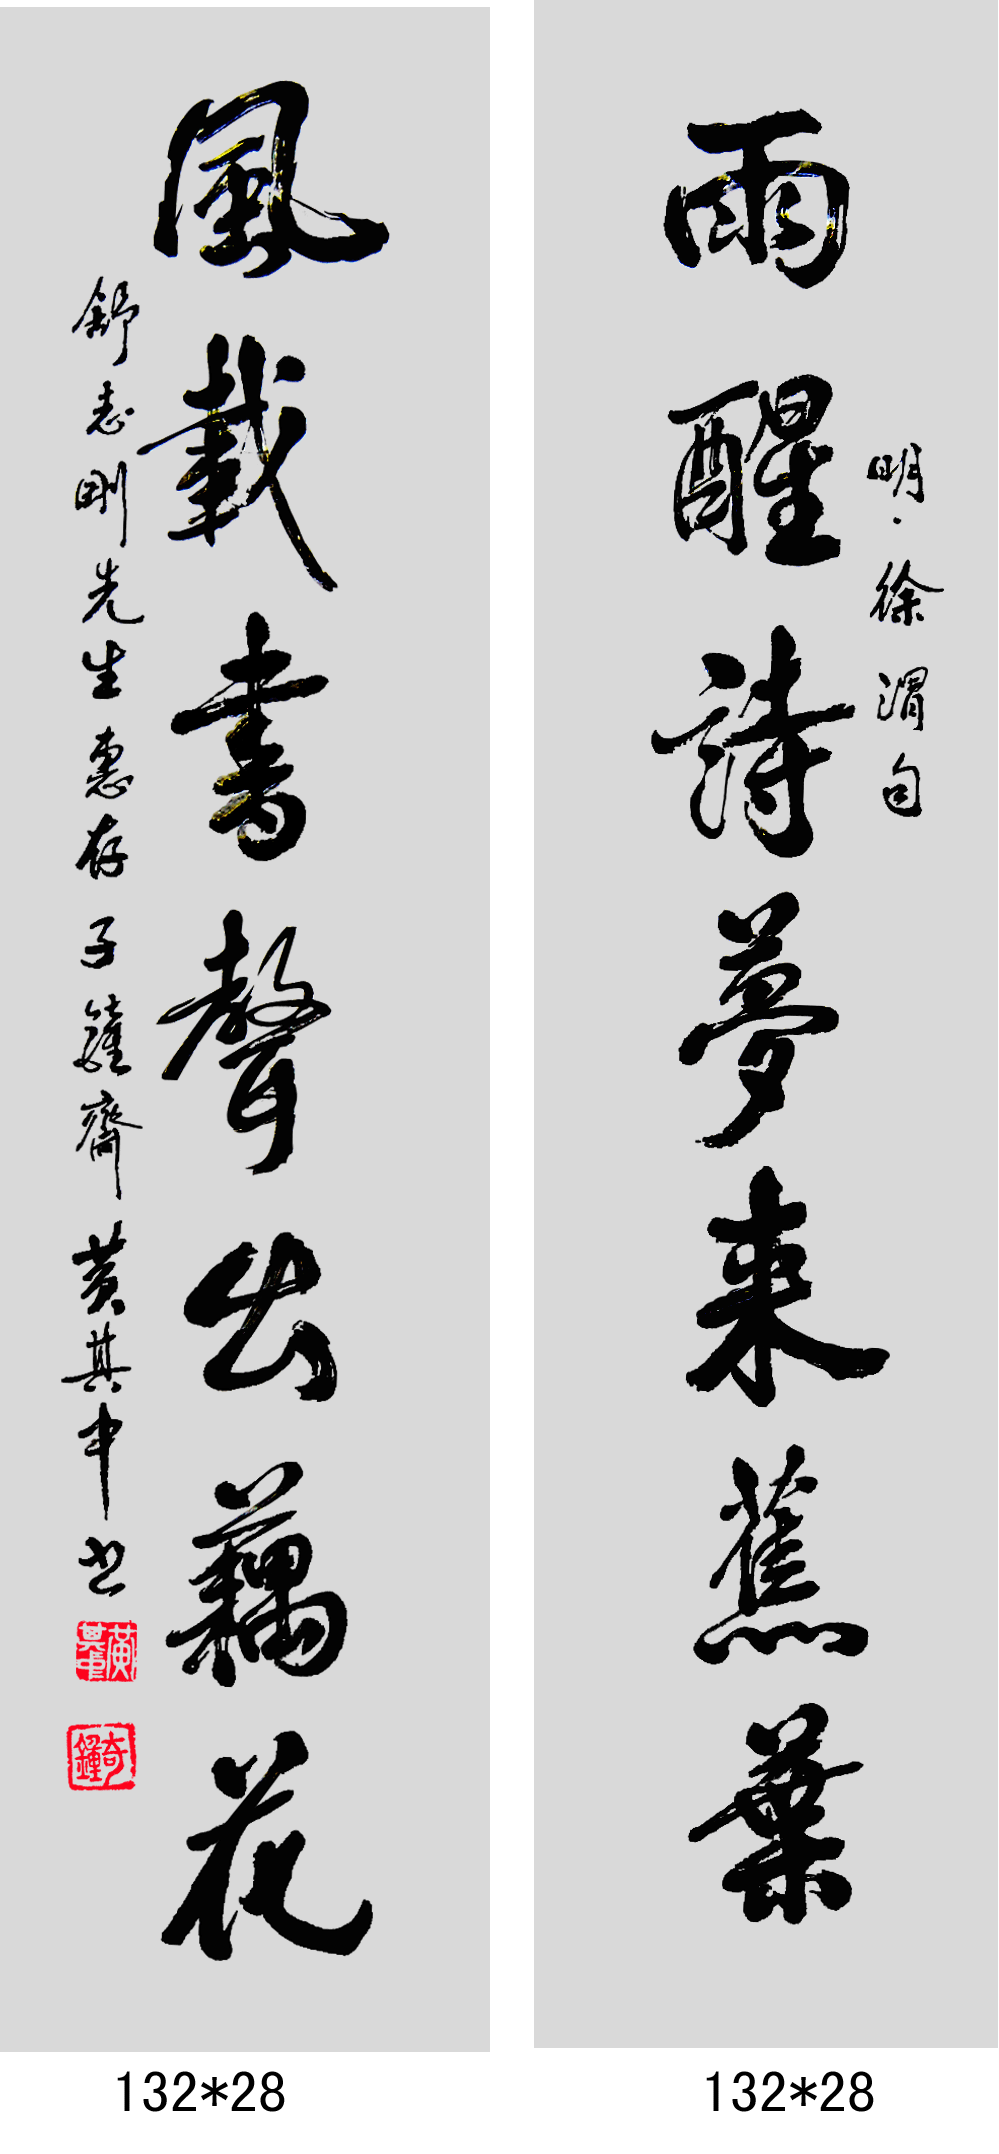 明·徐渭句
雨醒詩夢来蕉葉
風載書聲出藕花
舒志剛先生惠存子鐘齋黄其中书
黄其中
奇鐘
132*28
132*28